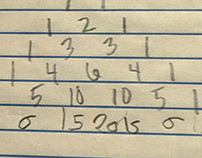 1 2 1
1 3 3 1
1 4 6 4 1
5 10 10 5 1
6 15 20 15 6